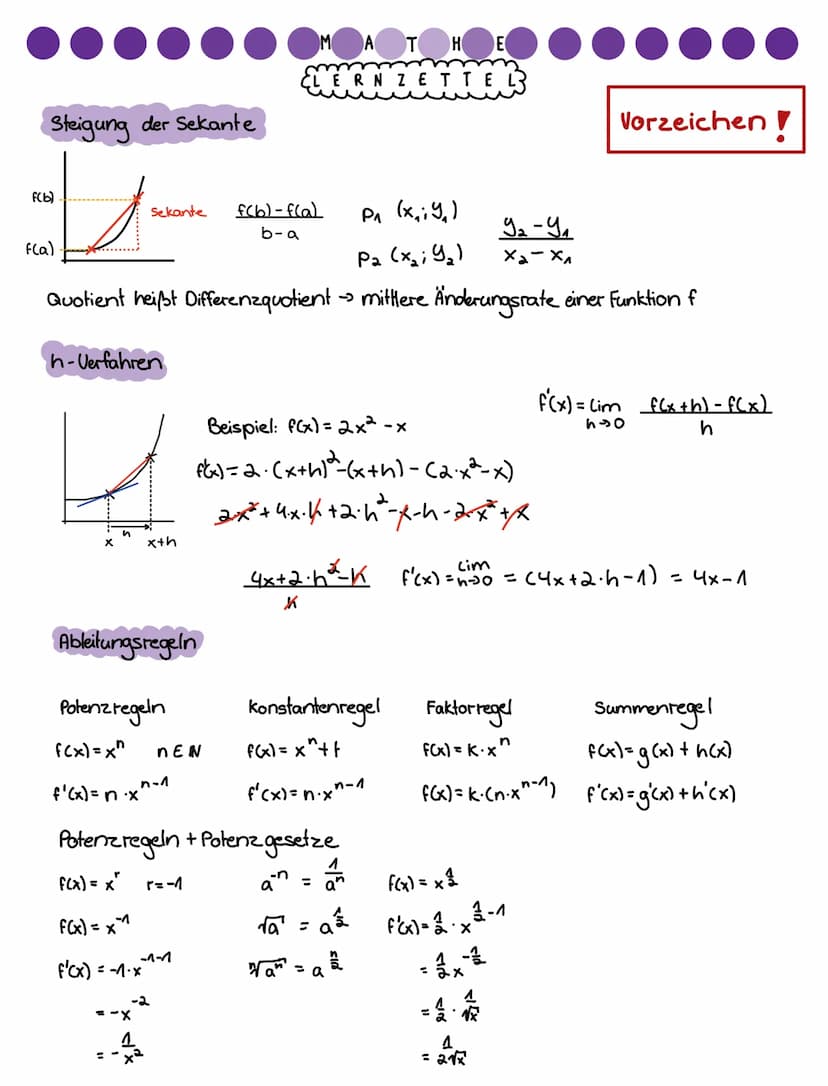 MATHE
LERNZETTEL
Vorzeichen!
Steigung der Sekante
f(b)
f(a)
Sekante
f(b)-f(a)
b-a
P₁ (x₁; y₁)
P₂ (x₂; y₂)
y₂-y₁
x₂-x₁
Quotient heißt Differenzquotient → mittlere Änderungsrate einer Funktion f
h-Verfahren
x h x+h
f'(x) = lim h→0 f(x+h)-f(x)
h
Beispiel: f(x) = 2x² -x
f'(x) = 2·(x+h)²-(x+h) - (2·x²-x)
2x²+4·x·h+2·h²-x-h-2·x²+x
4x+2·h²-h
h
f'(x) = lim h→0 = (4x+2·h-1) = 4x-1
Ableitungsregeln
Potenzregeln
f(x)=xⁿ n∈ℕ
f'(x)=n·xⁿ⁻¹
Konstantenregel
f(x)= xⁿ+t
f'(x)=n·xⁿ⁻¹
Faktorregel
f(x)=k·xⁿ
f(x)=k·(n·xⁿ⁻¹)
Summenregel
f(x)=g(x)+h(x)
f'(x)=g'(x)+h'(x)
Potenzregeln + Potenzgesetze
f(x) = x^r r=-1
f(x) = x⁻¹
f'(x) = -1·x⁻¹⁻¹
= -x⁻²
= - 1/x²
a⁻ⁿ = 1/aⁿ
√a = a^(1/2)
ⁿ√aⁿ = a^(n/2)
f(x) = x^(1/2)
f'(x) = 1/2 · x^(1/2-1)
= 1/2 x^(-1/2)
= 1/2 · 1/√x
= 1/2√x